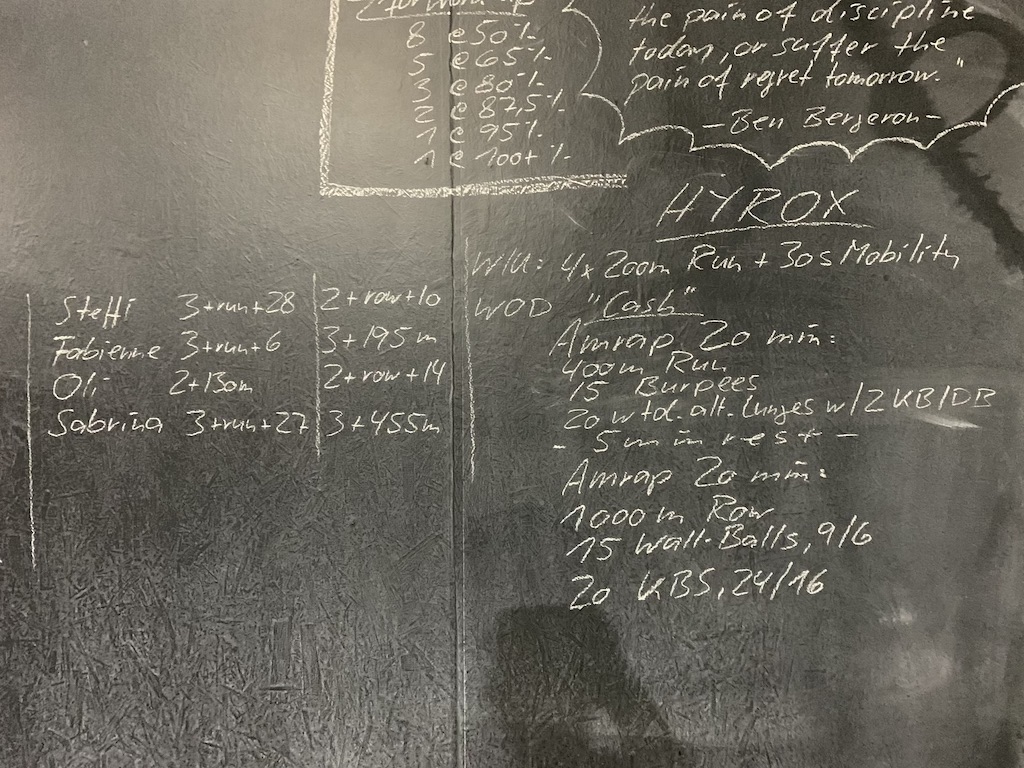 8 @ 50%
5 @ 65%
3 @ 80%
2 @ 87,5%
1 @ 95%
1 @ 100+%
the pain of discipline
today, or suffer the
pain of regret tomorrow."
- Ben Bergeron -
HYROX
WU: 4x 200m Run + 30s Mobility
WOD "Cash"
Amrap 20 min:
400m Run
15 Burpees
20 wtd. alt. Lunges w/2 KB/DB
- 5 min rest -
Amrap 20 min:
1000m Row
15 Wall-Balls, 9/6
20 KBS, 24/16
Steffi 3+run+28 2+row+10
Fabienne 3+run+6 3+195m
Oli 2+130m 2+row+14
Sabrina 3+run+27 3+455m